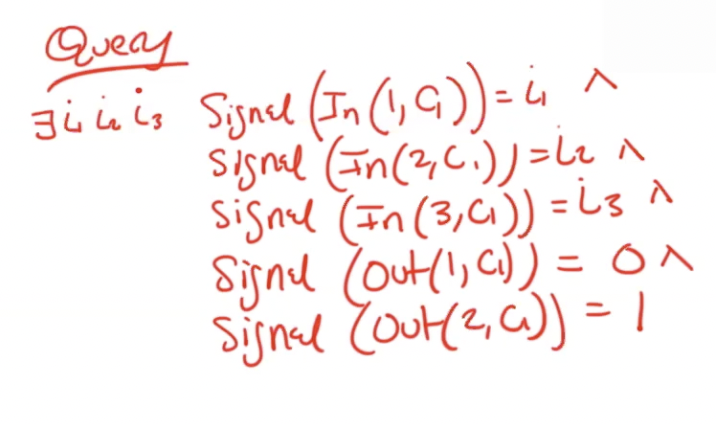 Query
∃i₁ i₂ i₃ Signal (In (1, C₁)) = i₁ ∧
Signal (In (2, C₁)) = i₂ ∧
Signal (In (3, C₁)) = i₃ ∧
Signal (Out (1, C₁)) = 0 ∧
Signal (Out (2, C₁)) = 1